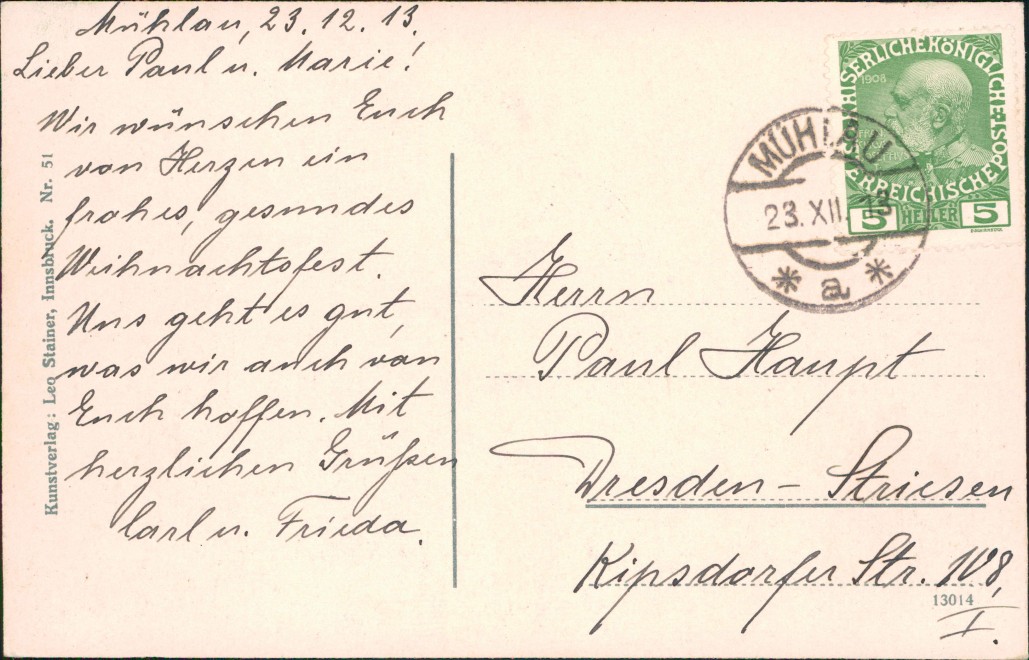 Mühlau, 23.12.13.
Lieber Paul u. Marie!
Wir wünschen Euch
von Herzen ein
frohes, gesundes
Weihnachtsfest.
Uns geht es gut,
was wir auch von
Euch hoffen. Mit
herzlichen Grüßen
Carl u. Frieda.
Kunstverlag: Leo Stainer, Innsbruck. Nr. 51
KAISERLICHE KÖNIGLICHE
ÖSTERREICHISCHE POST
1908
5 HELLER 5
MÜHLAU
23. XII. 13
* a *
Herrn
Paul Haupt
Dresden - Striesen
Kipsdorfer Str. 108,
I.
13014